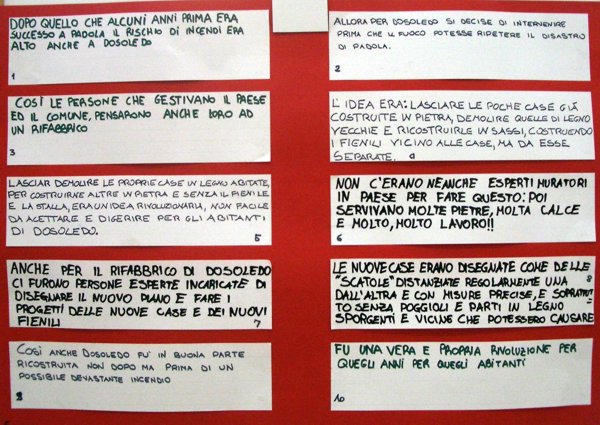 DOPO QUELLO CHE ALCUNI ANNI PRIMA ERA
SUCCESSO A PADOLA IL RISCHIO DI INCENDI ERA
ALTO ANCHE A DOSOLEDO
1
ALLORA PER DOSOLEDO SI DECISE DI INTERVENIRE
PRIMA CHE IL FUOCO POTESSE RIPETERE IL DISASTRO
DI PADOLA.
2
COSÌ LE PERSONE CHE GESTIVANO IL PAESE
ED IL COMUNE, PENSARONO ANCHE LORO AD
UN RIFABBRICO
3
L'IDEA ERA: LASCIARE LE POCHE CASE GIÀ
COSTRUITE IN PIETRA, DEMOLIRE QUELLE DI LEGNO
VECCHIE E RICOSTRUIRLE IN SASSI, COSTRUENDO
I FIENILI VICINO ALLE CASE, MA DA ESSE
SEPARATE.
LASCIAR DEMOLIRE LE PROPRIE CASE IN LEGNO ABITATE,
PER COSTRUIRNE ALTRE IN PIETRA E SENZA IL FIENILE
E LA STALLA, ERA UN IDEA RIVOLUZIONARIA, NON FACILE
DA ACETTARE E DIGERIRE PER GLI ABITANTI
DI DOSOLEDO.
5
NON C'ERANO NEANCHE ESPERTI MURATORI
IN PAESE PER FARE QUESTO: POI
SERVIVANO MOLTE PIETRE, MOLTA CALCE
E MOLTO, MOLTO LAVORO!!
6
ANCHE PER IL RIFABBRICO DI DOSOLEDO
CI FURONO PERSONE ESPERTE INCARICATE DI
DISEGNARE IL NUOVO PIANO E FARE I
PROGETTI DELLE NUOVE CASE E DEI NUOVI
FIENILI
7
LE NUOVE CASE ERANO DISEGNATE COME DELLE
"SCATOLE" DISTANZIATE REGOLARMENTE UNA
DALL'ALTRA E CON MISURE PRECISE, E SOPRATTUT
TO SENZA POGGIOLI E PARTI IN LEGNO
SPORGENTI E VICINE CHE POTESSERO CAUSARE
8
COSÌ ANCHE DOSOLEDO FU' IN BUONA PARTE
RICOSTRUITA NON DOPO MA PRIMA DI UN
POSSIBILE DEVASTANTE INCENDIO
FU UNA VERA E PROPRIA RIVOLUZIONE PER
QUEGLI ANNI PER QUEGLI ABITANTI
10